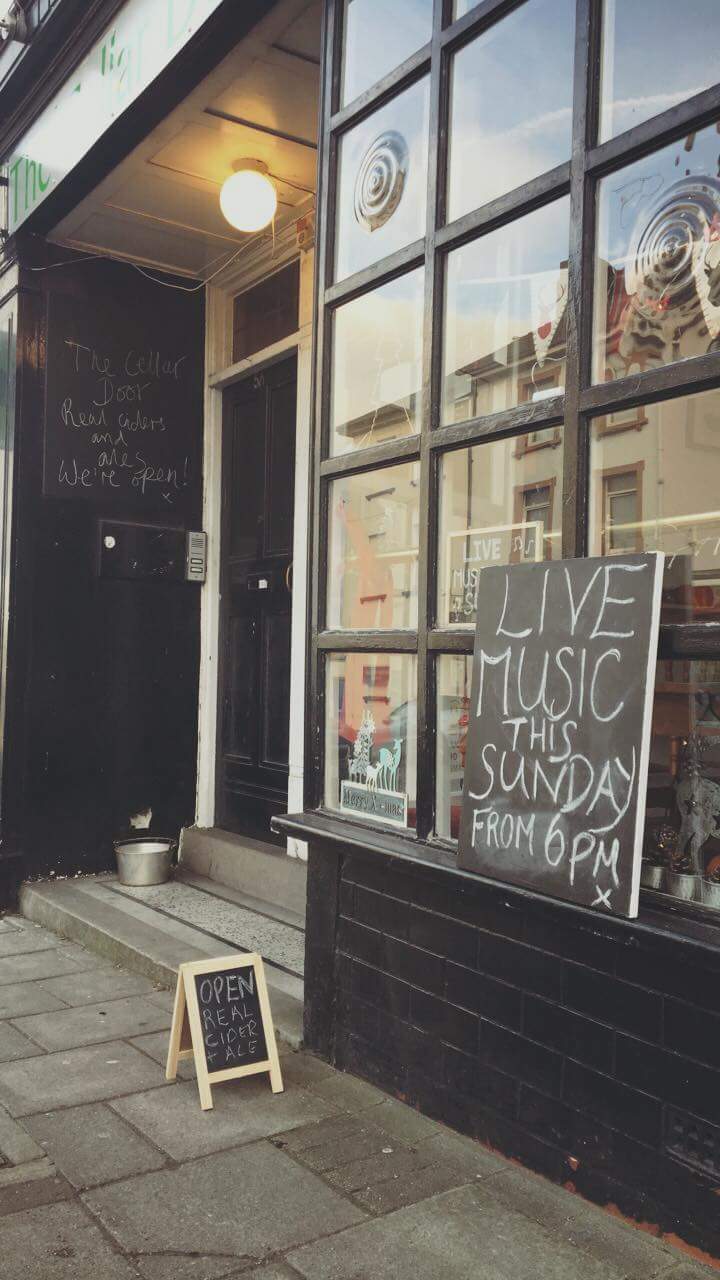 The Cellar D
The Cellar
Door
Real ciders
and
ales
We're open!
x
LIVE
MUS
S
LIVE
MUSIC
THIS
SUNDAY
FROM 6PM
x
Merry X-mas
OPEN
REAL
CIDER
+ ALE